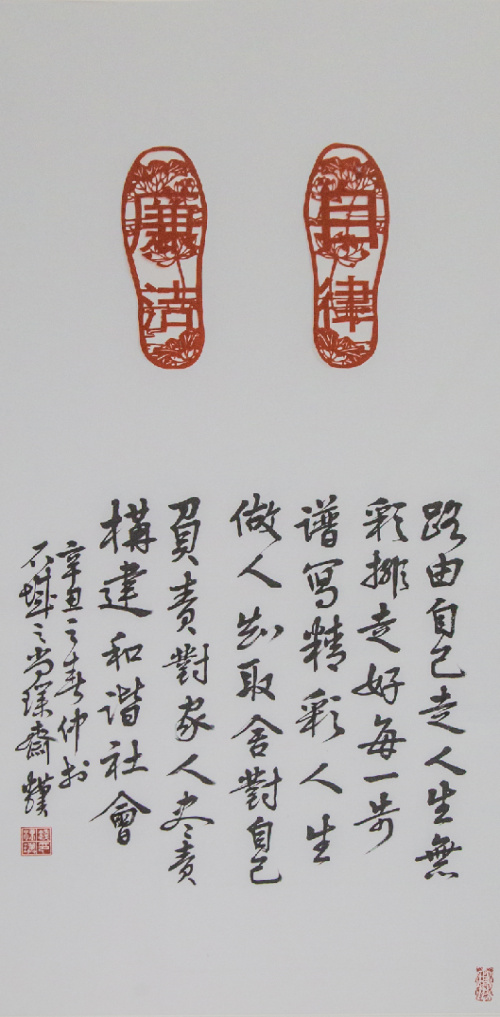 自律
廉洁
路由自己走人生無
彩排走好每一步
谱寫精彩人生
做人知取舍對自己
負責對家人尽責
構建和谐社會
辛丑之春仲於
石城之尚琛齋